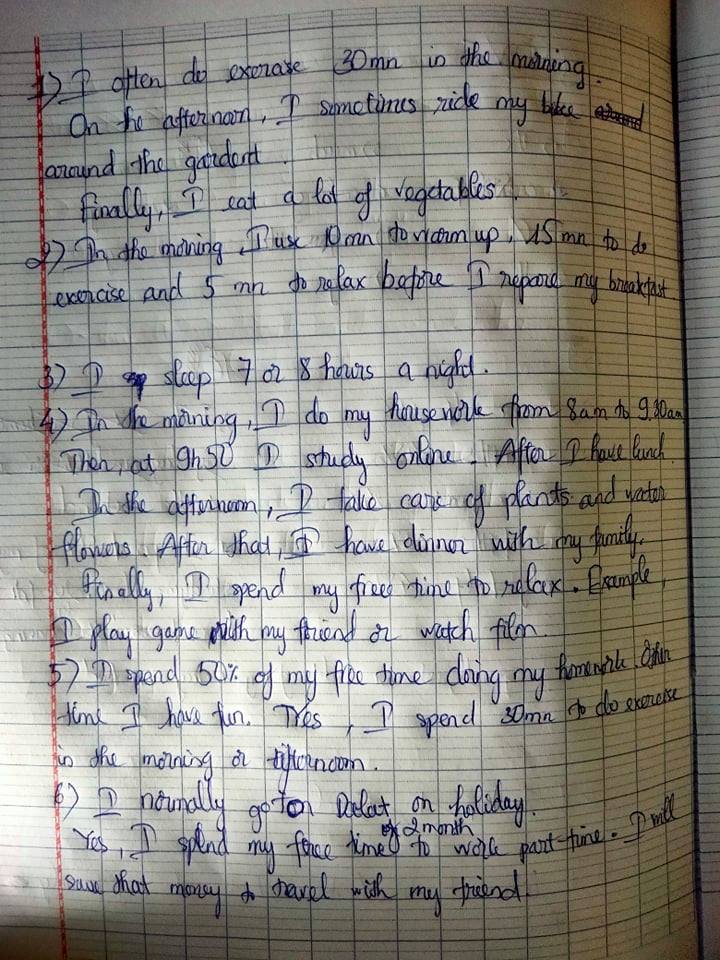 1) I often do exercise 30mn in the morning.
On the afternoon, I sometimes ride my bike
around the gardent.
Finally, I eat a lot of vegetables.
2) In the morning I use 10mn to warm up, 15mn to do
exercise and 5 mn to relax before I repare my breakfast
3) I sleep 7 or 8 hours a night.
4) In the morning, I do my housework from 8am to 9.30am
Then, at 9h50 I study online. After I have lunch.
In the afternoon, I take care of plants and water
flowers. After that, I have dinner with my family.
Finally, I spend my free time to relax. Example,
I play game with my friend or watch film.
5) I spend 50% of my free time doing my homework. Other
time I have fun. Yes, I spend 30mn to do exercise
in the morning or afternoon.
6) I normally go to Dalat on holiday.
Yes, I spend my free time of 2 month to work part-time. I will
save that money to travel with my friend.